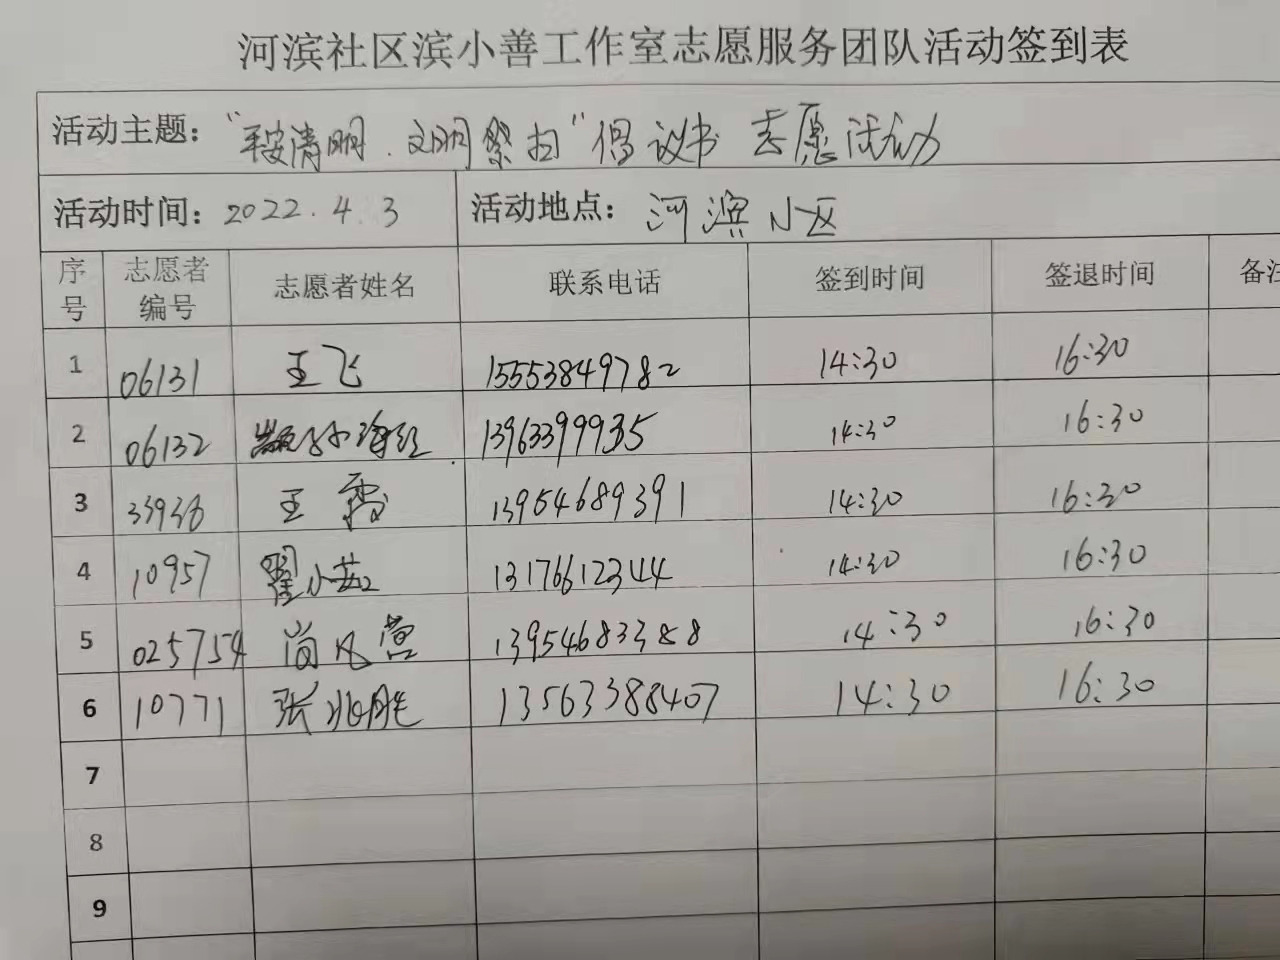 河滨社区滨小善工作室志愿服务团队活动签到表
活动主题：“平安清明．文明祭扫”倡议书 志愿活动
活动时间：2022.4.3 活动地点：河滨小区
序号 志愿者编号 志愿者姓名 联系电话 签到时间 签退时间 备注
1 06131 王飞 15553849782 14:30 16:30
2 06132 13963399935 14:30 16:30
3 33938 王霞 13954689391 14:30 16:30
4 10957 翟小燕 13176612344 14:30 16:30
5 025754 尚凡营 13954683388 14:30 16:30
6 10771 张兆胜 13563388407 14:30 16:30
7
8
9